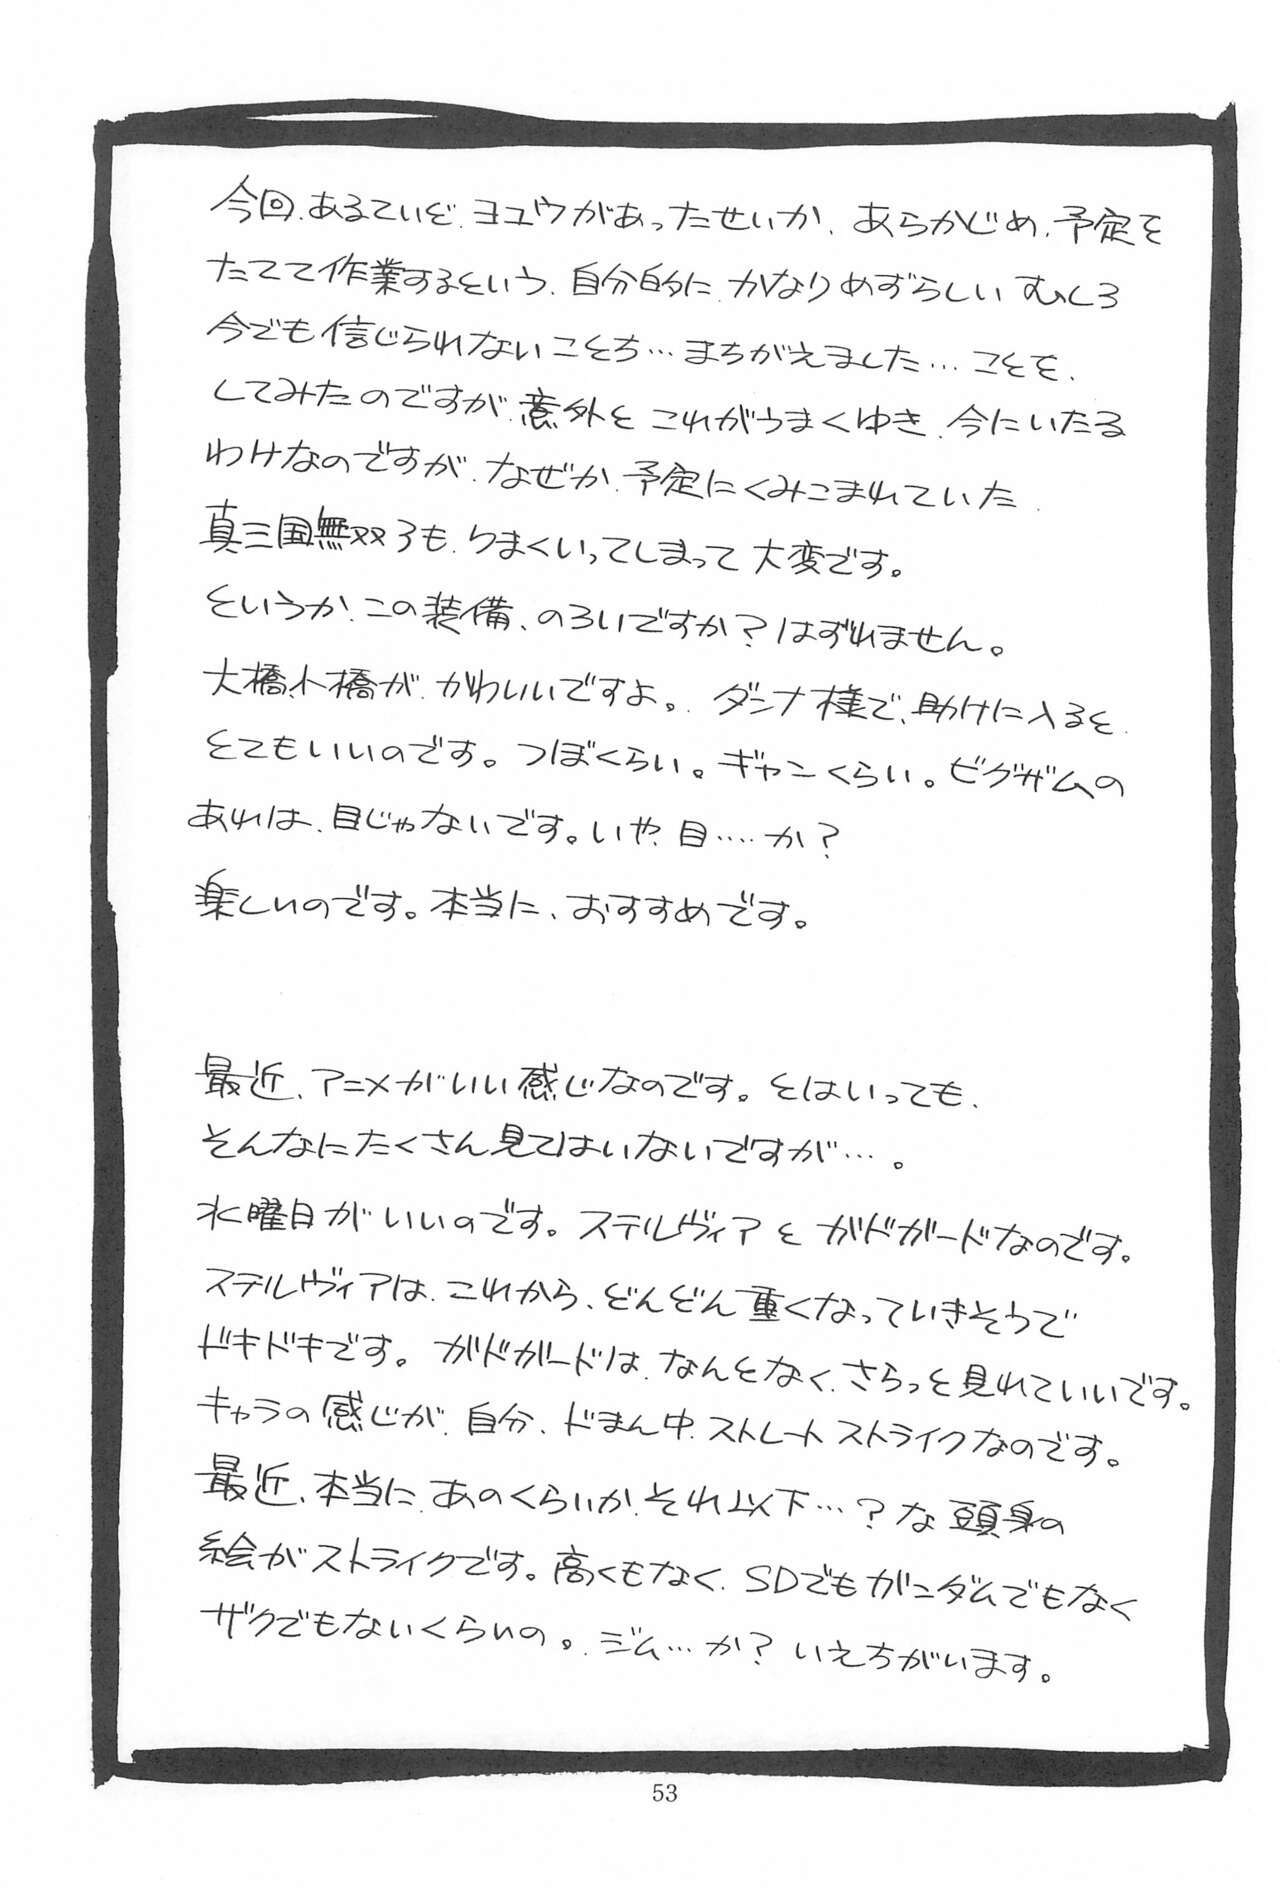 今回、あるていど、ヨユウがあったせいか、あらかじめ、予定を
たてて作業するという、自分的に、かなりめずらしい むしろ
今でも信じられないことち…まちがえました…ことを、
してみたのですが、意外と これがうまくゆき、今にいたる
わけなのですが、なぜか、予定にくみこまれていた、
真三国無双3も、うまくいってしまって大変です。
というか、この装備、のろいですか?はずれません。
大橋、小橋が、かわいいですよ。ダンナ様で、助けに入ると、
とてもいいのです。つぼくらい。ギャンくらい。ビグザムの
あれは、目じゃないです。いや、目….か?
楽しいのです。本当に、おすすめです。
最近、アニメがいい感じなのです。とはいっても、
そんなにたくさん見てはいないですが…。
水曜日がいいのです。ステルヴィアとガドガードなのです。
ステルヴィアは、これから、どんどん重くなっていきそうで
ドキドキです。ガドガードは、なんとなく、さらっと見れていいです。
キャラの感じが、自分、ドまん中、ストレートストライクなのです。
最近、本当に、あのくらいか、それ以下…?な頭身の
絵がストライクです。高くもなく、SDでもガンダムでもなく
ザクでもないくらいの。ジム…か? いえちがいます。
53